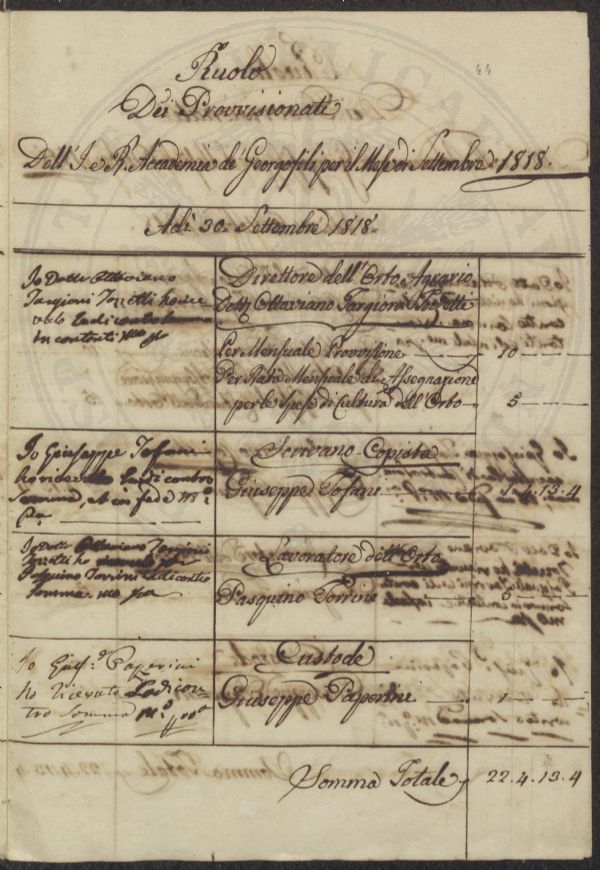 44
Ruolo
Dei Provvisionati
Dell'I. e R. Accademia de' Georgofili per il Mese di Settembre 1818.
Adì 30. Settembre 1818.
Io Dotte Ottaviano
Targioni Tozzetti ho rice-
vuto la di contro somma
in contanti mo pa
Direttore dell'Orto Agrario
Dottr Ottaviano Targioni Tozzetti
Per Mensuale Provvisione 10
Per Rata Mensuale di Assegnazione
per le Spese di Cultura dell'Orto 5
Io Giuseppe Tofani
ho ricevuto la di contro
Somma, et in fede Mo
Pa
Scrivano Copista
Giuseppe Tofani 1.4.13.4
Io Dotte Ottaviano Targioni
Tozzetti ho ricevuto per
Pasquino Torrini la di contro
Somma mo pa
Lavoratore dell'Orto
Pasquino Torrini 5
Io Giuse Paperini
ho ricevuto La di con-
tro Somma Mo
Custode
Giuseppe Paperini 1
Somma Totale 22.4.13.4